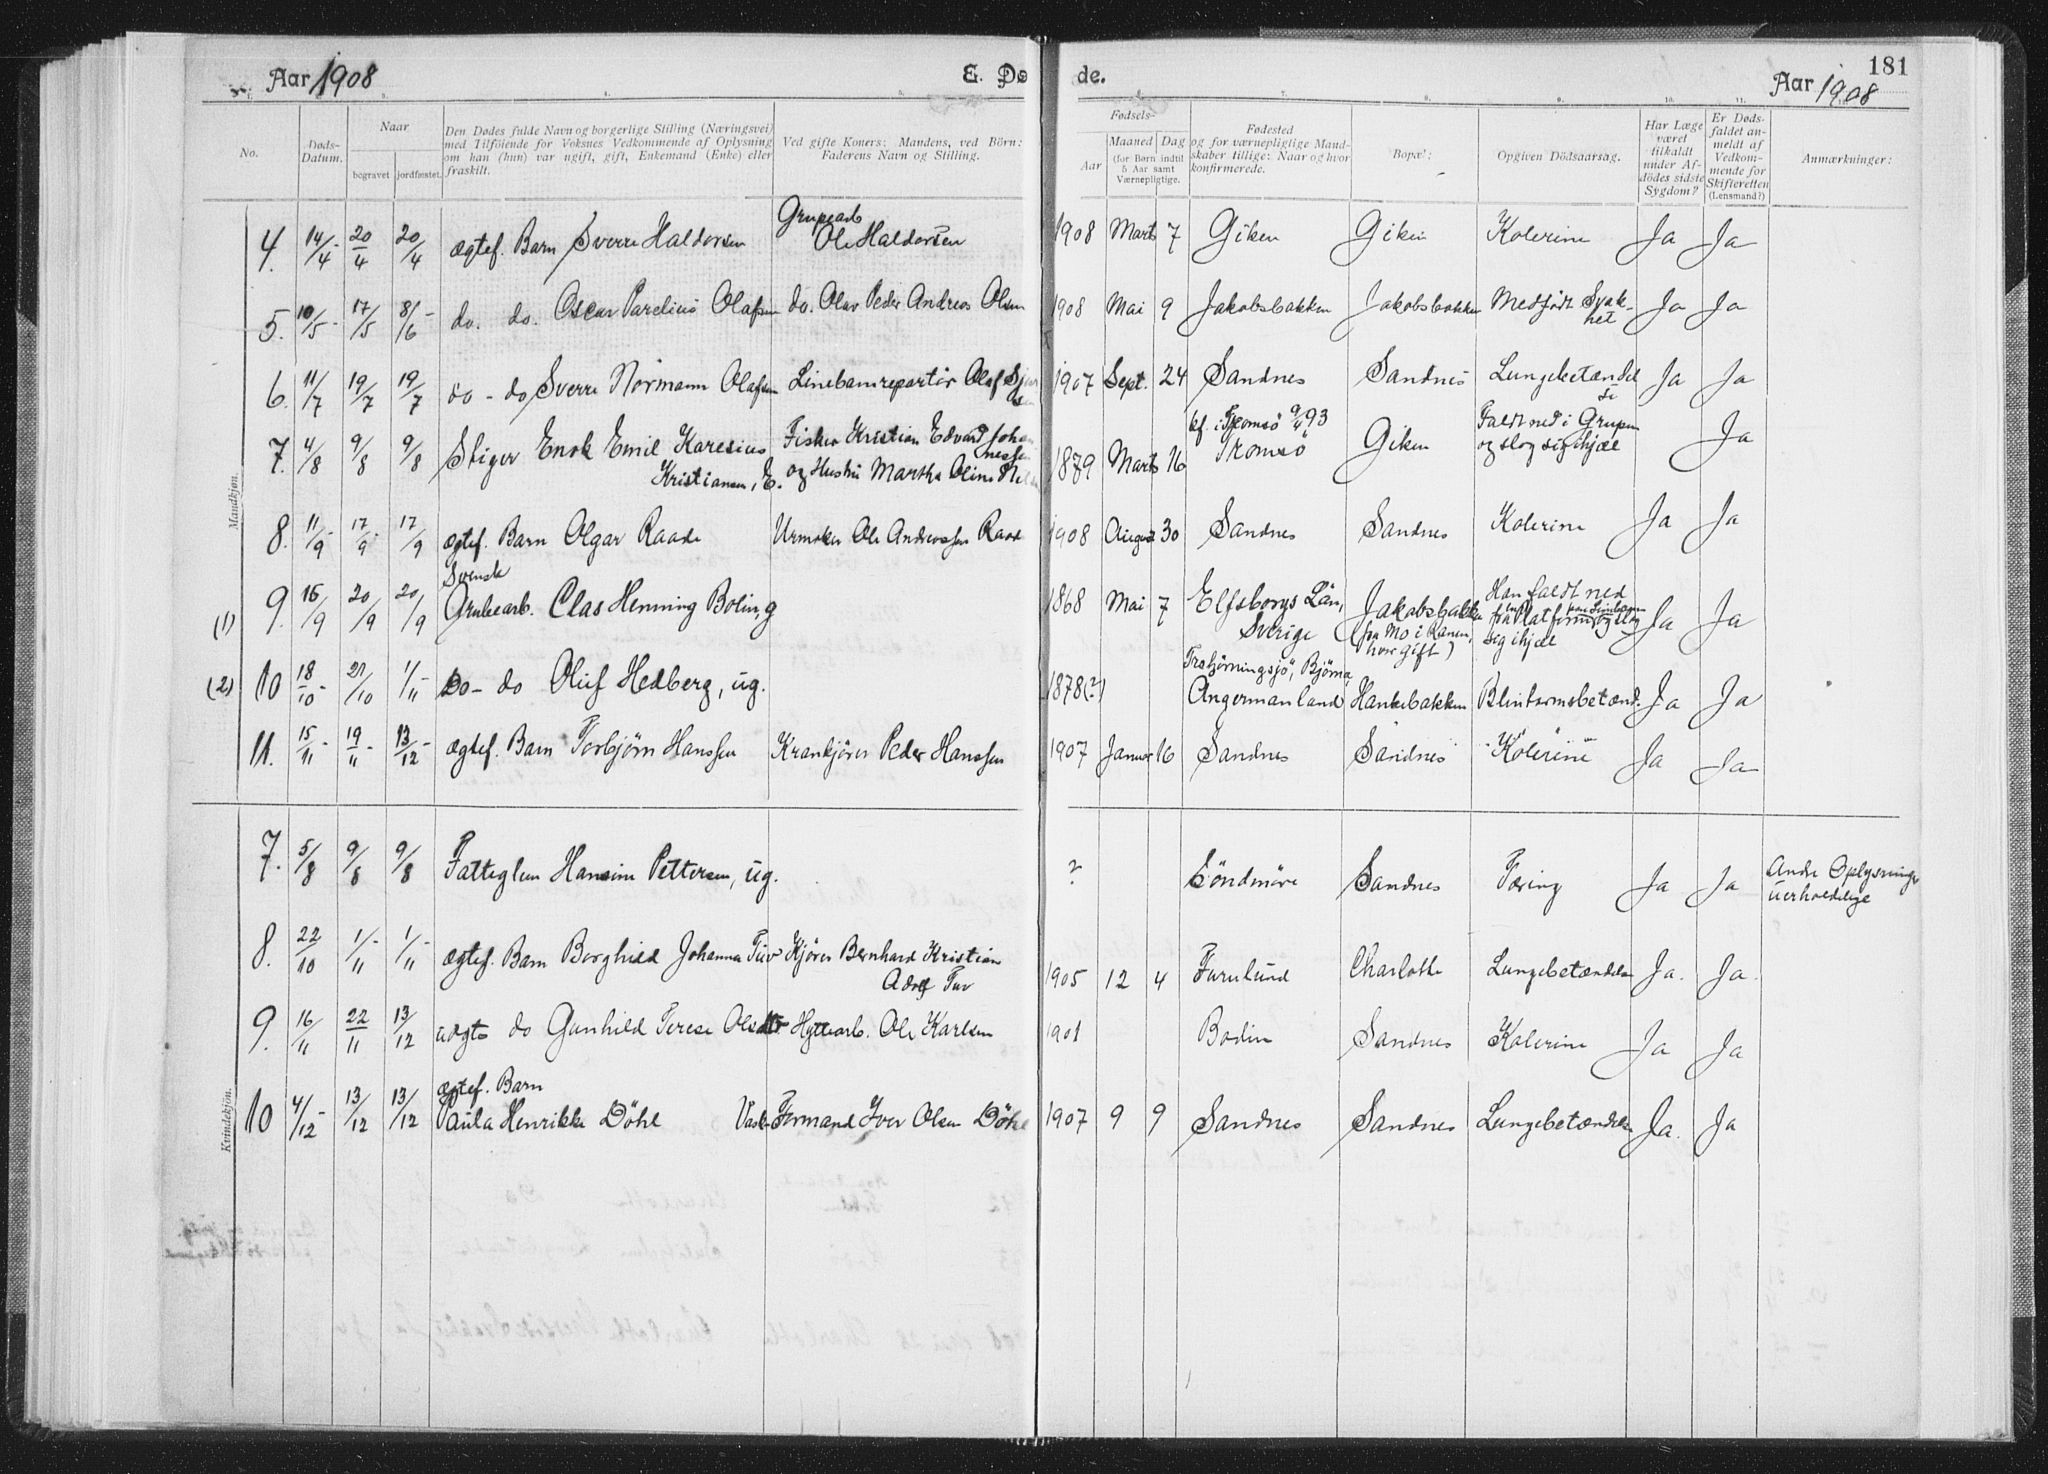 Aar 1908
E. Dø de.
181
Aar 1908
No.
Døds-
Datum.
Naar
bogravet
jordfæstet.
Den Dødes fulde Navn og borgerlige Stilling (Næringsvei)
med Tilføiende for Voksnes Vedkommende af Oplysning
om han (hun) var ugift, gift, Enkemand (Enke) eller
fraskilt.
Ved gifte Koners: Mandens, ved Børn:
Faderens Navn og Stilling.
Fødsels-
Aar
Maaned
Dag
(for Børn indtil
5 Aar samt
Værnepligtige.
Fødested
og for værnepligtige Mand-
skaber tillige: Naar og hvor
konfirmerede.
Bopæl:
Opgiven Dødsaarsag.
Har Læge
været
tilkaldt
under Af-
dødes sidste
Sygdom?
Er Døds-
faldet an-
meldt af
Vedkom-
mende for
Skifteretten
(Lensmand?)
Anmærkninger:
Mandkjøn.
Grubearb
4. 14/4 20/4 20/4 ægtef. Barn Sverre Haldorsen Ole Haldorsen 1908 Marts 7 Giken Giken Kolerine Ja Ja
5. 10/5 17/5 8/6 do. do. Oscar Parelius Olafsen do. Olav Peder Andreas Olsen 1908 Mai 9 Jakobsbakken Jakobsbakken Medfødt Svak- Ja Ja
het
6. 11/7 19/7 19/7 do - do Sverre Normann Olafsen Linebanereparatør Olaf 1907 Sept. 24 Sandnes Sandnes Lungebetændel Ja Ja
se
kf. i Tromsø 9/4 93 Faldt ned i Gruben
7. 4/8 9/8 9/8 Stiger Enok Emil Karesius Fisker Kristian Edvard Johan 1879 Marts 16 Tromsø Giken og slog sig ihjæl Ja
nessen
Kristiansen, E. og Hustru Martha Oline
8. 11/9 17/9 17/9 ægtef. Barn Olgar Raade Urmaker Ole Andreassen Raade 1908 August 30 Sandnes Sandnes Kolerine Ja Ja
Svensk
(1) 9. 16/9 20/9 20/9 Grubearb. Clas Henning Boling 1868 Mai 7 Elfsborgs Län, Jakobsbakken Han faldt ned Ja Ja
Sverige (fra Mo i Ranen, fra Platform og slog
hvor gift) sig ihjæl
(2) 10 18/10 21/10 1/11 Do - do Oluf Hedberg, ug. 1878(?) Björna, Angermanland Hankebakken Blintarmsbetænd. Ja Ja
11. 15/11 19/11 13/12 ægtef. Barn Torbjørn Hanssen Krankjører Peder Hanssen 1907 Januar 16 Sandnes Sandnes Kolerine Ja Ja
Kvindekjøn.
7. 5/8 9/8 9/8 Fattiglem Hansine Pettersen, ug. ? Söndmöre Sandnes Tæring Ja Ja Andre Oplysninger
uerholdelige
8. 22/10 1/11 1/11 ægtef. Barn Borghild Johanna Tuv Kjører Bernhard Kristian 1905 12 4 Furulund Charlotte Lungebetændelse Ja. Ja.
Adolf Tuv
9. 16/11 22/11 13/12 uægte do Gunhild Terese Olsdtr Hyttearb. Ole Karlsen 1901 Bodin Sandnes Kolerine Ja Ja
ægtef. Barn
10 4/12 13/12 13/12 Paula Henrikke Döhl Vask-Formand Iver Olsen Döhl 1907 9 9 Sandnes Sandnes Lungebetændelse Ja. Ja